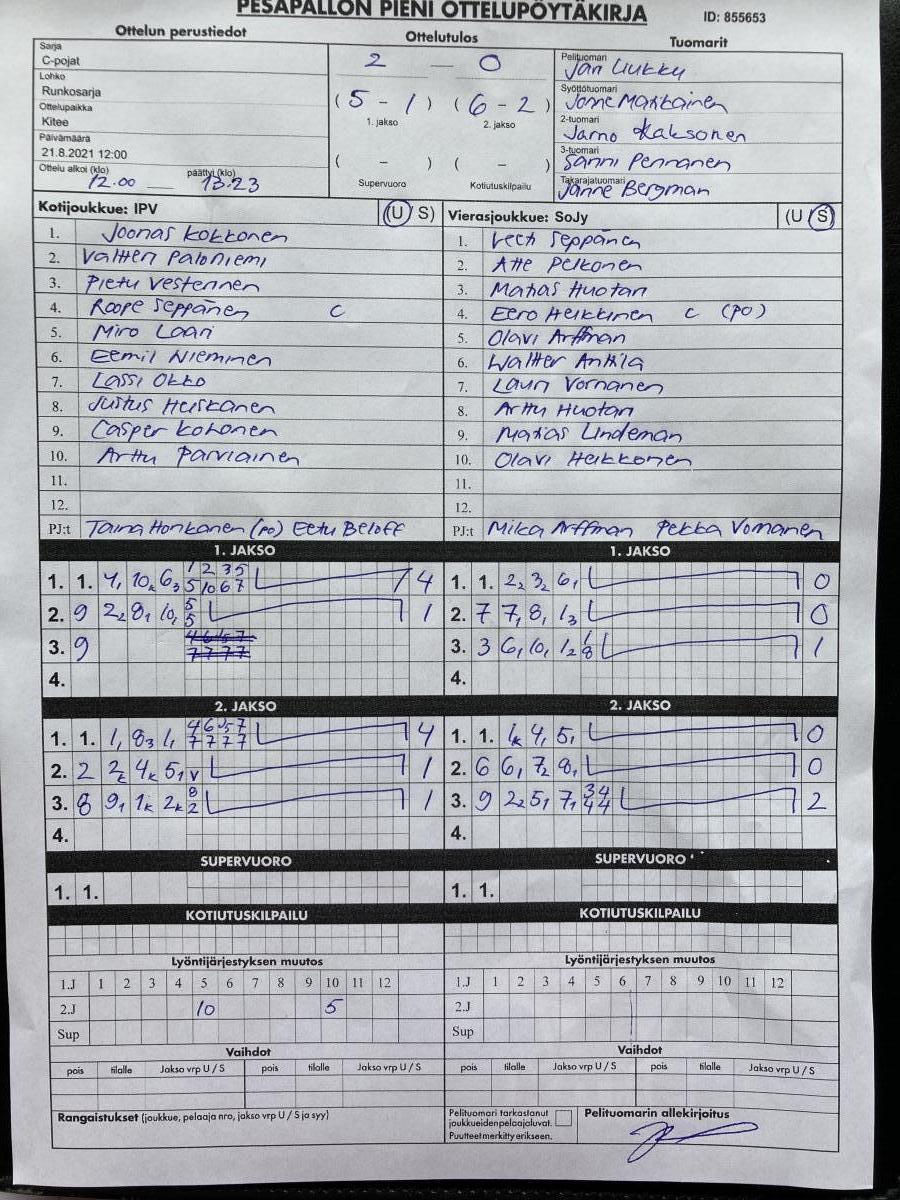 PESÄPALLON PIENI OTTELUPÖYTÄKIRJA
ID: 855653
Ottelun perustiedot
Ottelutulos
Tuomarit
Sarja
C-pojat
Lohko
Runkosarja
Ottelupaikka
Kitee
Päivämäärä
21.8.2021 12:00
Ottelu alkoi (klo) päättyi (klo)
12.00 — 13.23
2 — 0
( 5 - 1 ) ( 6 - 2 )
1. jakso 2. jakso
( - ) ( - )
Supervuoro Kotiutuskilpailu
Pelituomari
Jan Liukku
Syöttötuomari
Jonne Matikainen
2-tuomari
Jarno Kaksonen
3-tuomari
Sanni Pennanen
Takarajatuomari
Janne Bergman
Kotijoukkue: IPV (U S)
1. Joonas Kokkonen
2. Valtteri Paloniemi
3. Pietu Vesterinen
4. Roope Seppänen C
5. Miro Laari
6. Eemil Nieminen
7. Lassi Okko
8. Justus Heiskanen
9. Casper Kohonen
10. Arttu Parviainen
11.
12.
PJ:t Taina Honkanen (po) Eetu Beloff
Vierasjoukkue: SoJy (U S)
1. Veeti Seppänen
2. Atte Pelkonen
3. Matias Huotari
4. Eero Heikkinen C (po)
5. Olavi Arffman
6. Waltter Anttila
7. Lauri Vornanen
8. Arttu Huotari
9. Matias Lindeman
10. Olavi Heikkonen
11.
12.
PJ:t Mika Arffman Pekka Vornanen
1. JAKSO
1. 1. 4, 10k 63 1 2 3 5 4
5 10 6 7
2. 9 22 81 10, 5 1
5
3. 9 4 6 5 7
7 7 7 7
4.
1. JAKSO
1. 1. 22 32 61 0
2. 7 71 81 13 0
3. 3 61 101 12 1 1
8
4.
2. JAKSO
1. 1. 11 83 11 4 6 5 7 4
7 7 7 7
2. 2 2 4k 51 v 1
3. 8 91 1k 2k 8 1
2
4.
2. JAKSO
1. 1. 1k 41 51 0
2. 6 61 72 81 0
3. 9 22 51 71 3 4 2
4 4
4.
SUPERVUORO
1. 1.
SUPERVUORO
1. 1.
KOTIUTUSKILPAILU
KOTIUTUSKILPAILU
Lyöntijärjestyksen muutos
1.J 1 2 3 4 5 6 7 8 9 10 11 12
2.J 10 5
Sup
Lyöntijärjestyksen muutos
1.J 1 2 3 4 5 6 7 8 9 10 11 12
2.J
Sup
Vaihdot
pois tilalle Jakso vrp U / S pois tilalle Jakso vrp U / S
Vaihdot
pois tilalle Jakso vrp U / S pois tilalle Jakso vrp U / S
Rangaistukset (joukkue, pelaaja nro, jakso vrp U / S ja syy)
Pelituomari tarkastanut
joukkueiden pelaajaluvat.
Puutteet merkitty erikseen.
Pelituomarin allekirjoitus